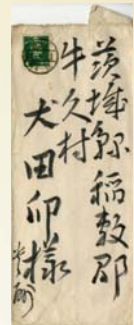 茨城縣稲敷郡
牛久村
犬田卯様